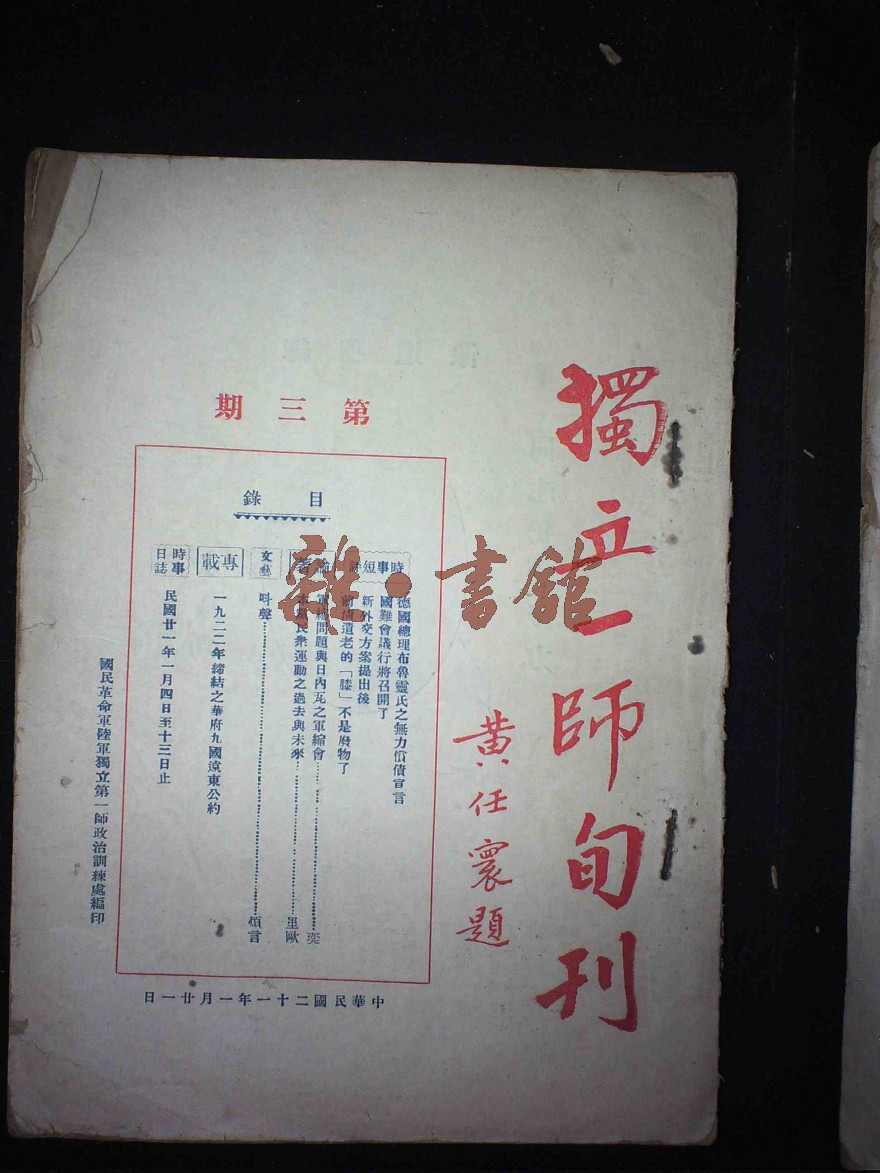 獨立一師旬刊
黄任寰題
第三期
目錄
時事短評
德國總理布魯靈氏之無力償債宣言
國難會議行將召開了
新外交方案提出後
前清遺老的「膝」不是廢物了
論著
問題與日內瓦之軍縮會……奕
民衆運動之過去與未來……里歐
文藝
呌聲……煩言
專載
一九二二年締結之華府九國遠東公約
時事日誌
民國廿一年一月四日至十三日止
國民革命軍陸軍獨立第一師政治訓練處編印
中華民國二十一年一月廿一日
雜·書館